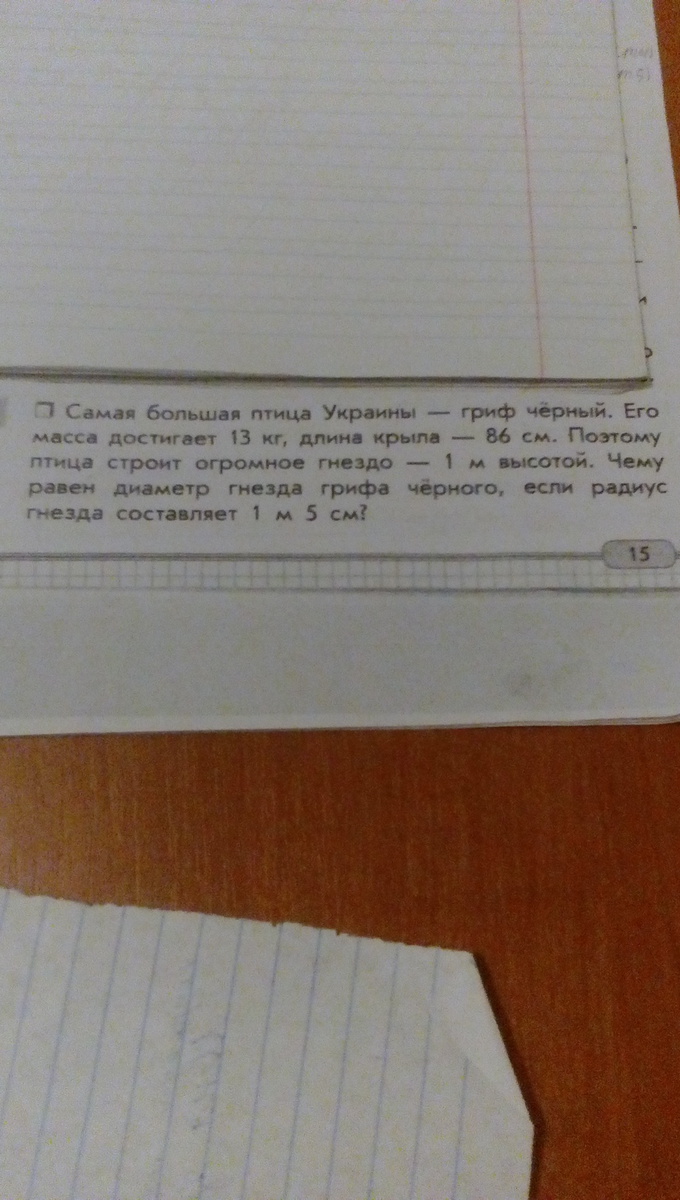 Самая большая птица Украины — гриф чёрный. Его
масса достигает 13 кг, длина крыла — 86 см. Поэтому
птица строит огромное гнездо — 1 м высотой. Чему
равен диаметр гнезда грифа чёрного, если радиус
гнезда составляет 1 м 5 см?
15